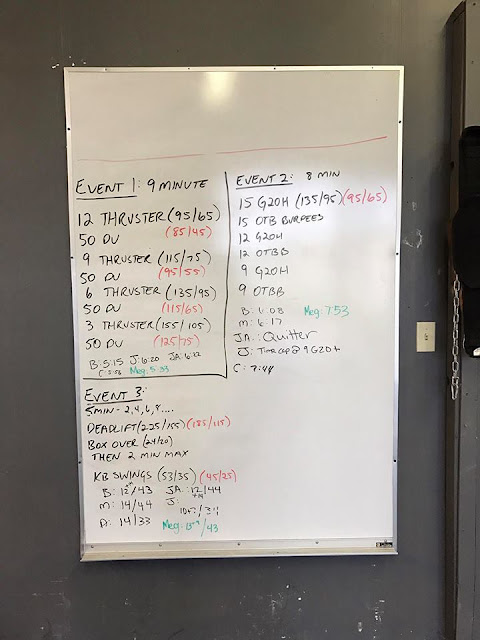 EVENT 1: 9 MINUTE
12 THRUSTER (95/65)
(85/45)
50 DU
9 THRUSTER (115/75)
(95/55)
50 DU
6 THRUSTER (135/95)
(115/65)
50 DU
3 THRUSTER (155/105)
(125/75)
50 DU
B: 5:15 J: 6:20 JA: 6:22
C: 5:56 Meg: 5:33
EVENT 2: 8 MIN
15 G2OH (135/95) (95/65)
15 OTB BURPEES
12 G2OH
12 OTBB
9 G2OH
9 OTBB
B: 6:08 Meg: 7:53
M: 6:17
JA: Quitter
J: Time cap @ 9 G2O
C: 7:44
EVENT 3:
5 MIN - 2, 4, 6, 8....
DEADLIFT (225/155) (185/115)
BOX OVER (24/20)
THEN 2 MIN MAX
KB SWINGS (53/35) (45/25)
B: 12/43 JA: 12/44
M: 14/44 J:
D: 14/33 Meg: /43